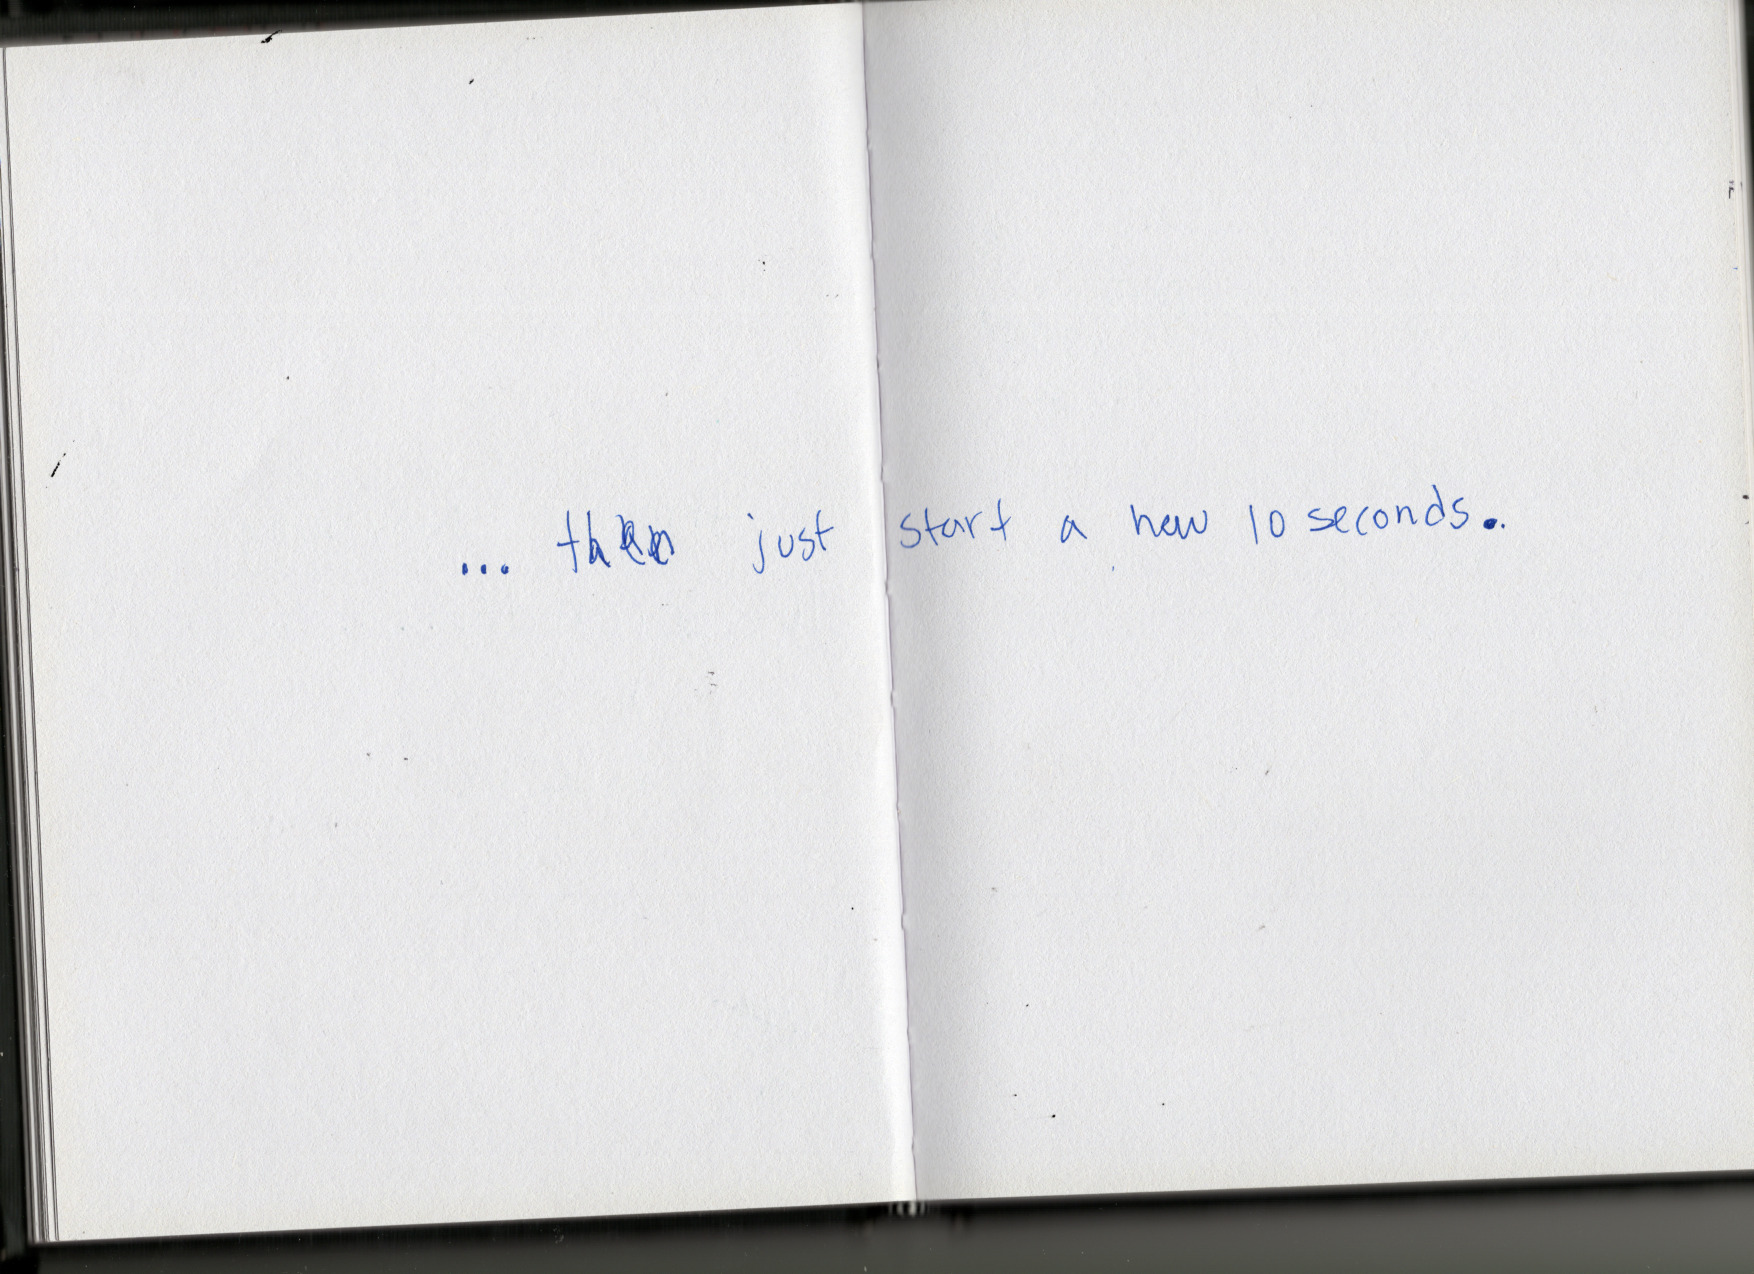 ... then just start a new 10 seconds..